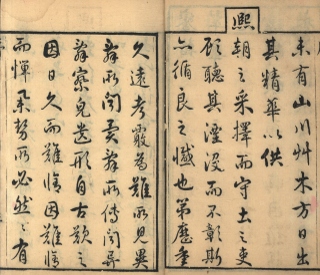 未有山川艸木方日出
其精華以供
熙朝之采擇而守土之吏
顧聽其湮沒而不彰斯
亦循良之憾也第歷年
久遠考覈為難所見異
辭所聞異辭所傳聞異
辭遺形自古歎之
因日久而難脩因難脩
而憚勢所必然然有